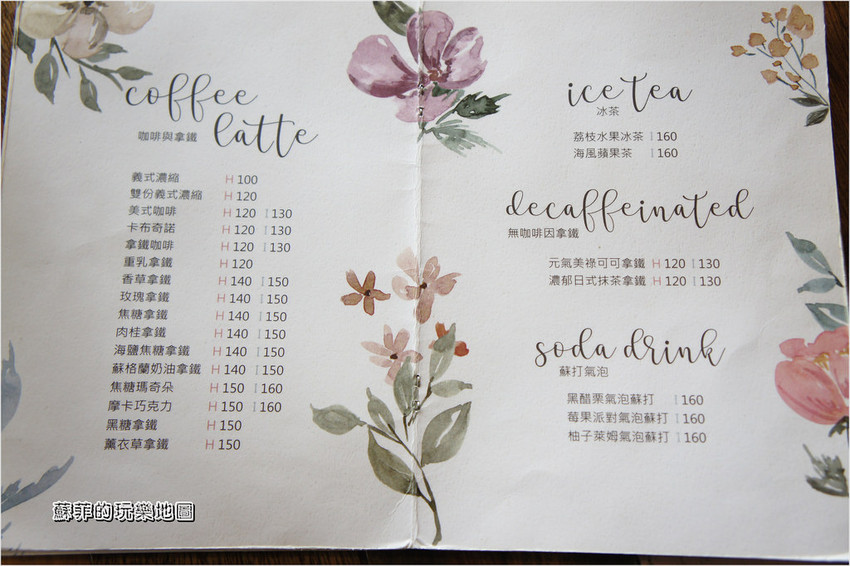 coffee
latte
咖啡與拿鐵
義式濃縮 H 100
雙份義式濃縮 H 120
美式咖啡 H 120 I 130
卡布奇諾 H 120 I 130
拿鐵咖啡 H 120 I 130
重乳拿鐵 H 120
香草拿鐵 H 140 I 150
玫瑰拿鐵 H 140 I 150
焦糖拿鐵 H 140 I 150
肉桂拿鐵 H 140 I 150
海鹽焦糖拿鐵 H 140 I 150
蘇格蘭奶油拿鐵 H 140 I 150
焦糖瑪奇朵 H 150 I 160
摩卡巧克力 H 150 I 160
黑糖拿鐵 H 150
薰衣草拿鐵 H 150
ice tea
冰茶
荔枝水果冰茶 I 160
海風蘋果茶 I 160
decaffeinated
無咖啡因拿鐵
元氣美祿可可拿鐵 H 120 I 130
濃郁日式抹茶拿鐵 H 120 I 130
soda drink
蘇打氣泡
黑醋栗氣泡蘇打 I 160
莓果派對氣泡蘇打 I 160
柚子萊姆氣泡蘇打 I 160
蘇菲的玩樂地圖